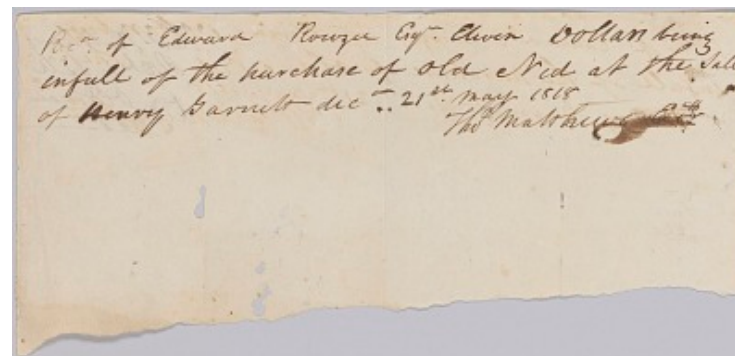 Recd. of Edward Rouzee Esqr. Elevin Dollars being
infull of the purchase of old Ned at the Sale
of Henry Garnett decd.. 21st. may 1818
Thos. Matthews